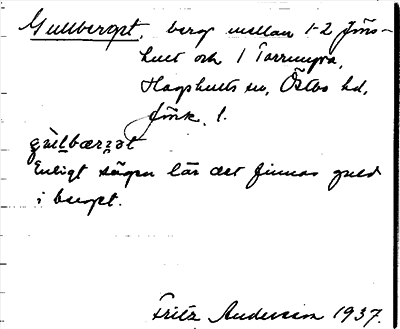 Gullberget, berg mellan 1-2 Jöns-
hult och 1 Torrmyra,
Haghults sn, Östbo hd,
Jönk. l.
gùlbærgət
Enligt sägen lär det finnas guld
i berget.
Fritz Andersson 1937.